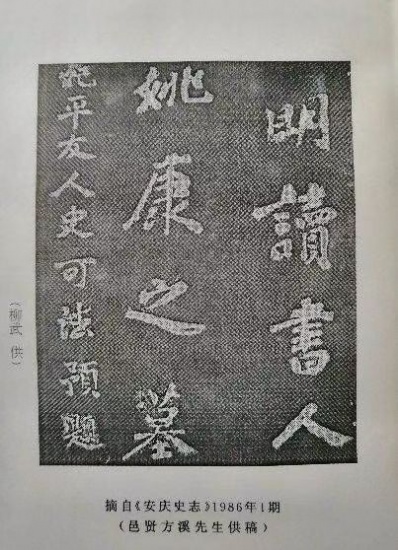 明讀書人
姚康之墓
平友人史可法預題
（柳武 供）
摘自《安庆史志》1986年1期
（邑贤方溪先生供稿）